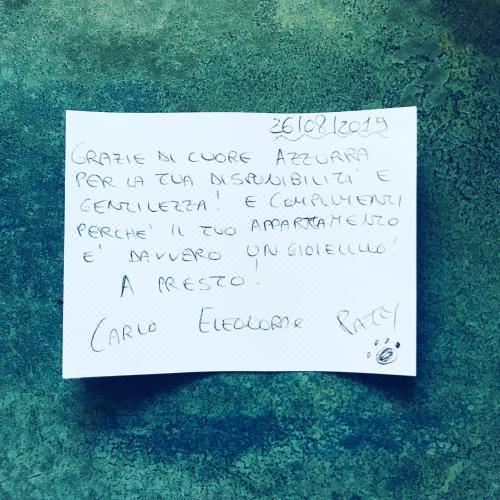 26/08/2019
GRAZIE DI CUORE AZZURRA
PER LA TUA DISPONIBILITÀ E
GENTILEZZA! E COMPLIMENTI
PERCHÈ IL TUO APPARTAMENTO
E' DAVVERO UN GIOIELLO!
A PRESTO!
CARLO ELEONORA PATTY